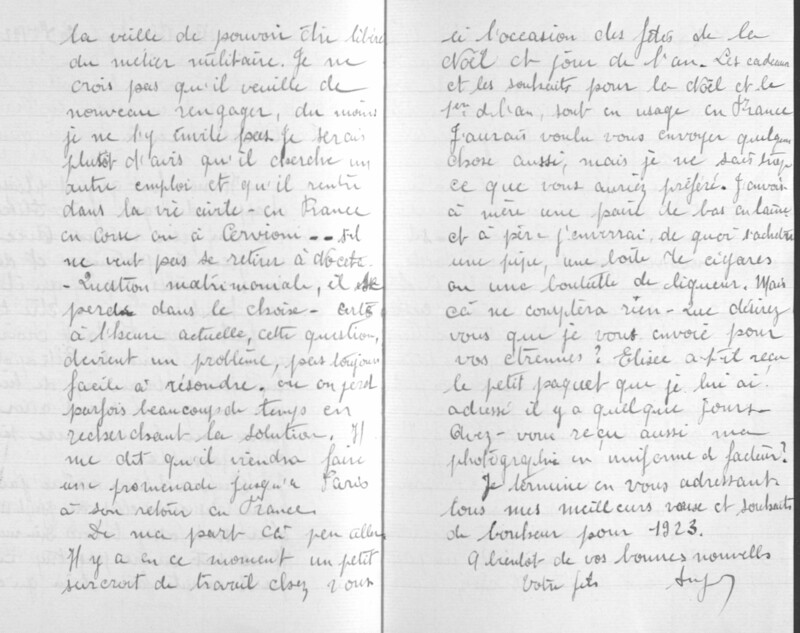 la veille de pouvoir être libéré
du metier militaire. Je ne
crois pas qu'il veuille de
nouveau rengager, du moins
je ne l'y invite pas. Je serais
plutôt d'avis qu'il cherche un
autre emploi et qu'il rentre
dans la vie civile - en France
en Corse ou à Cervioni -- s'il
ne veut pas se retirer à
- Question matrimoniale, il se
perd dans le choix - certes
à l'heure actuelle, cette question,
devient un problème, pas toujours
facile à résoudre. ou on perd
parfois beaucoup de temps en
recherchant la solution. Il
me dit qu'il viendra faire
une promenade jusqu'à Paris
à son retour en France.
De ma part çà peu aller
Il y a en ce moment un petit
surcroit de travail chez nous
à l'occasion des fêtes de la
Noël et jour de l'an. Les cadeaux
et les souhaits pour la Noël et le
1er de l'an, sont en usage en France
J'aurais voulu vous envoyer quelque
chose aussi, mais je ne sais trop
ce que vous auriez préféré. J'envoie
à mère une paire de bas en laine
et à père j'enverrai de quoi s'acheter
une pipe, une boîte de cigares
ou une bouteille de liqueur. Mais
çà ne comptera rien - que désirez
vous que je vous envoie pour
vos etrennes ? Elisée a-t-il reçu
le petit paquet que je lui ai
adressé il y a quelque jours -
Avez-vous reçu aussi ma
photographie en uniforme d facteur ?
Je termine en vous adressant
tous mes meilleurs vœux et souhaits
de bonheur pour 1923.
A bientot de vos bonnes nouvelles
Votre fils